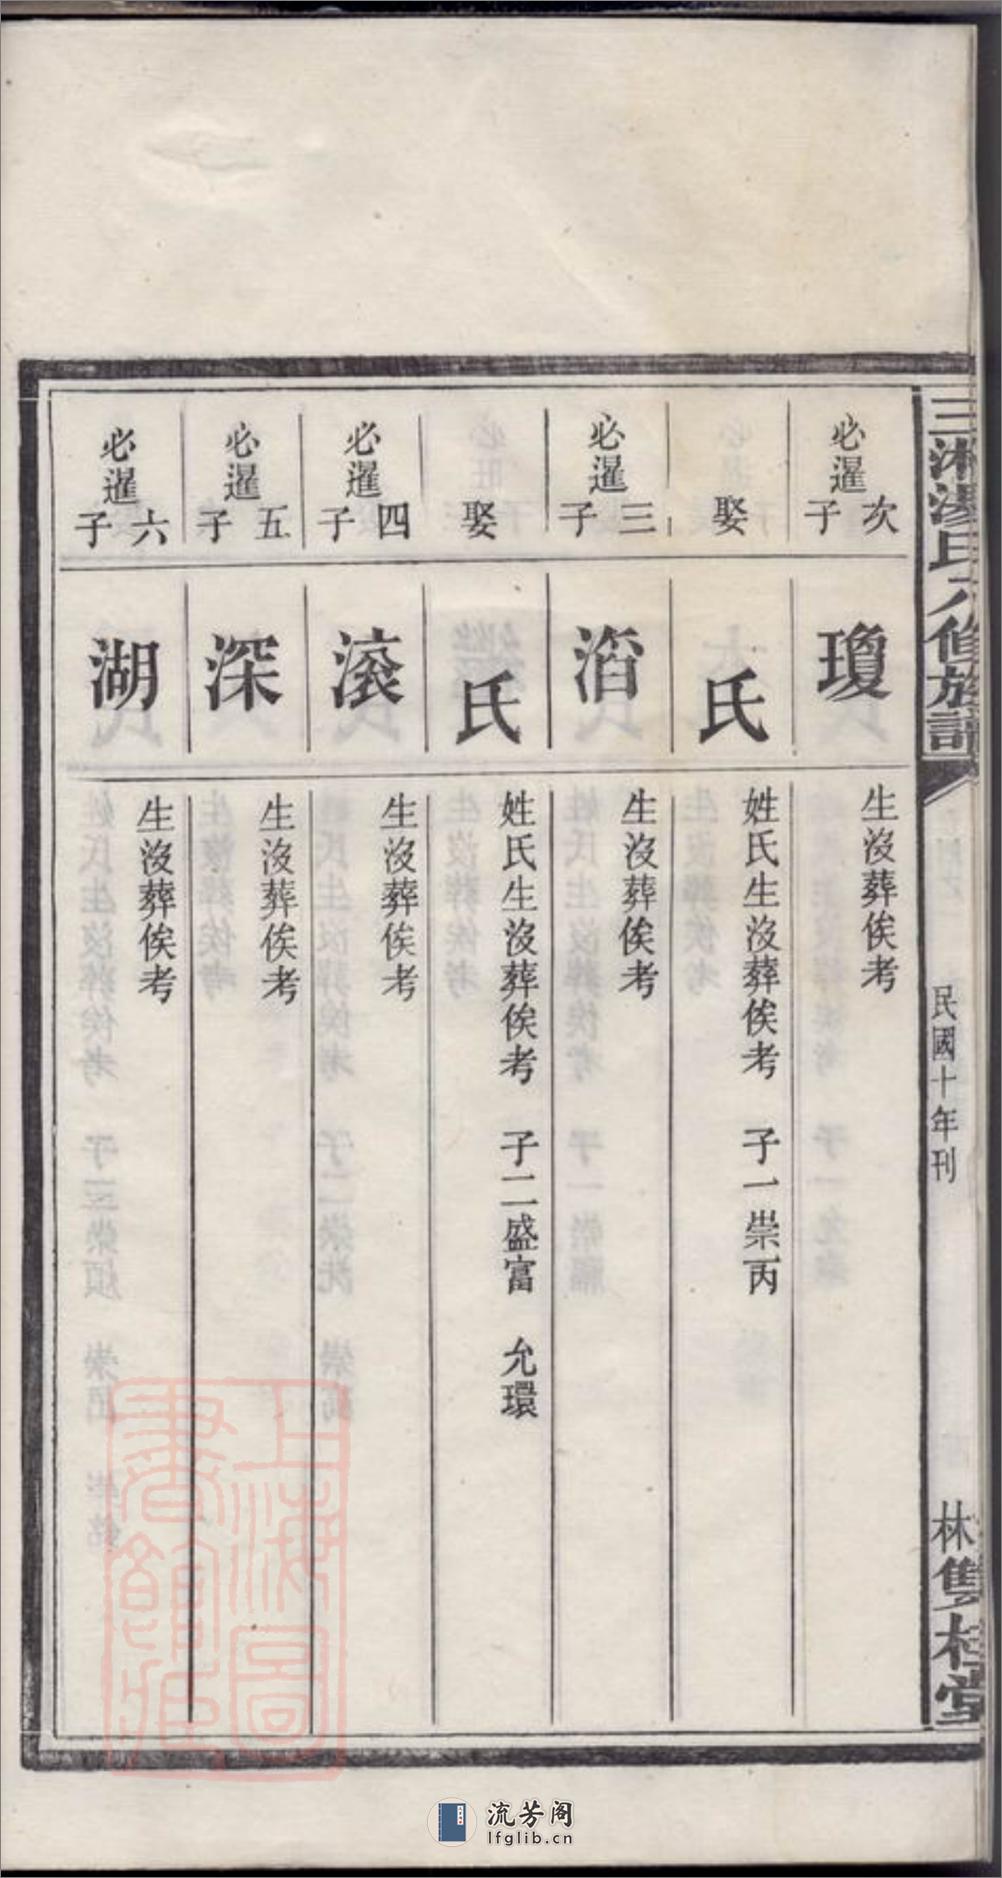 三湘湯氏六修族譜
民國十年刊
林雙桂堂
必暹次子
瓊
生沒葬俟考
娶
氏
姓氏生沒葬俟考 子一崇丙
必暹三子
滔
生沒葬俟考
娶
氏
姓氏生沒葬俟考 子二盛富 允環
必暹四子
滚
生沒葬俟考
必暹五子
深
生沒葬俟考
必暹六子
湖
生沒葬俟考
上海圖書館藏
流芳阁
lfglib.cn